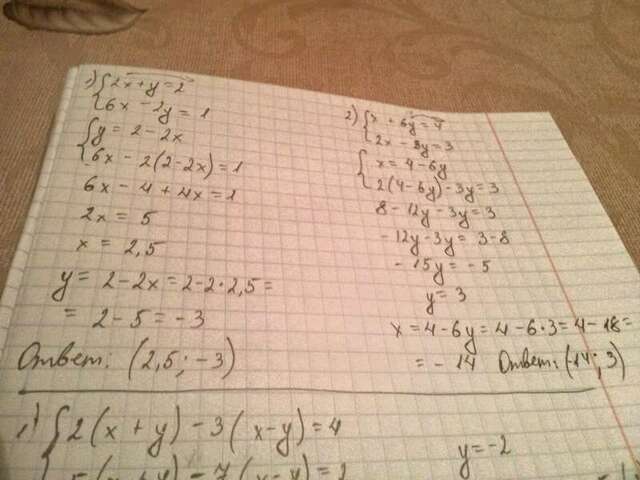 1) { 2x + y = 2
6x - 2y = 1
{ y = 2 - 2x
6x - 2(2 - 2x) = 1
6x - 4 + 4x = 1
2x = 5
x = 2,5
y = 2 - 2x = 2 - 2 · 2,5 =
= 2 - 5 = -3
Ответ: (2,5; -3)
2) { x + 6y = 4
2x - 3y = 3
{ x = 4 - 6y
2(4 - 6y) - 3y = 3
8 - 12y - 3y = 3
-12y - 3y = 3 - 8
-15y = -5
y = 3
x = 4 - 6y = 4 - 6 · 3 = 4 - 18 =
= -14 Ответ: (-14; 3)
1) { 2(x + y) - 3(x - y) = 4
5(x + y) - 7(x - y) = 2
y = -2